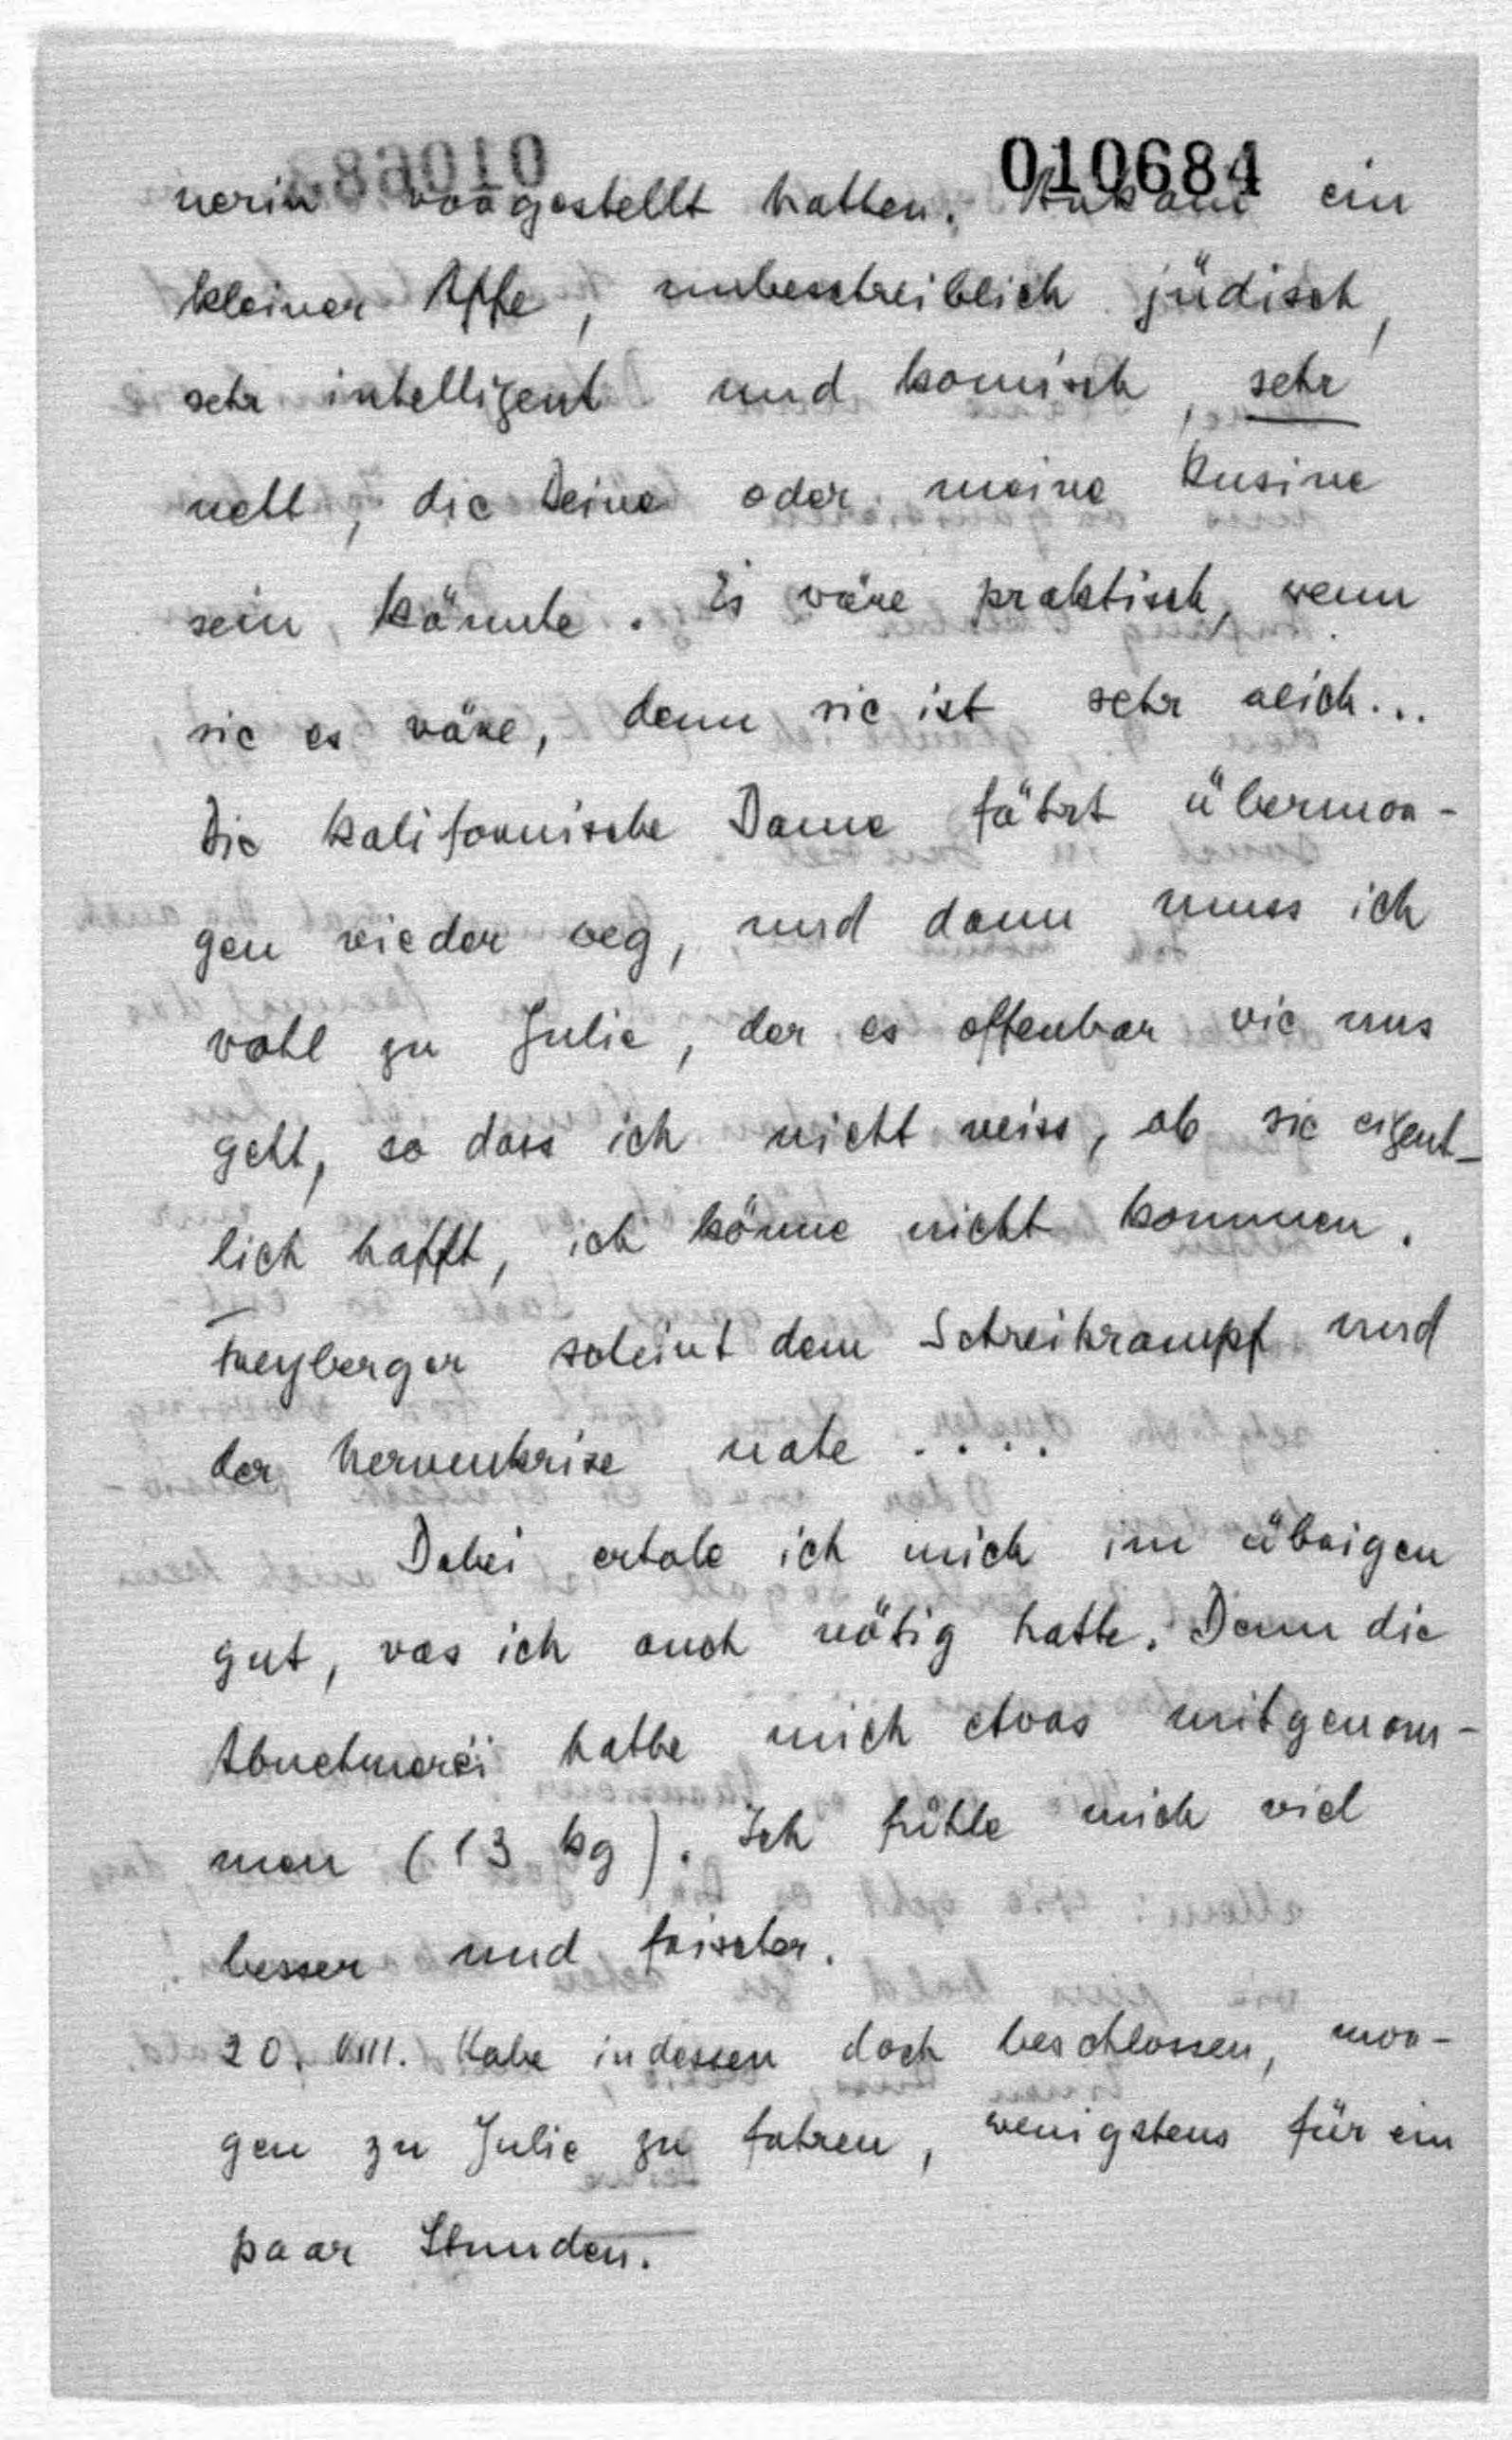 010684
nerin vorgestellt hatten. Ankam ein
kleiner Affe, unbeschreiblich jüdisch,
sehr intelligent und komisch, sehr
nett, die Deine oder meine Kusine
sein könnte. Es wäre praktisch, wenn
sie es wäre, denn sie ist sehr reich...
Die kalifornische Dame fährt übermor-
gen wieder weg, und dann muss ich
wohl zu Julie, der es offenbar wie uns
geht, so dass ich nicht weiss, ob sie eigent-
lich hofft, ich könne nicht kommen.
Freyberger scheint dem Schreikrampf und
der Nervenkrise nahe ....
Dabei erhole ich mich im übrigen
gut, was ich auch nötig hatte. Denn die
Abnehmerei hatte mich etwas mitgenom-
men (13 kg). Ich fühle mich viel
besser und frischer.
20. VIII. Habe indessen doch beschlossen, mor-
gen zu Julie zu fahren, wenigstens für ein
paar Stunden.